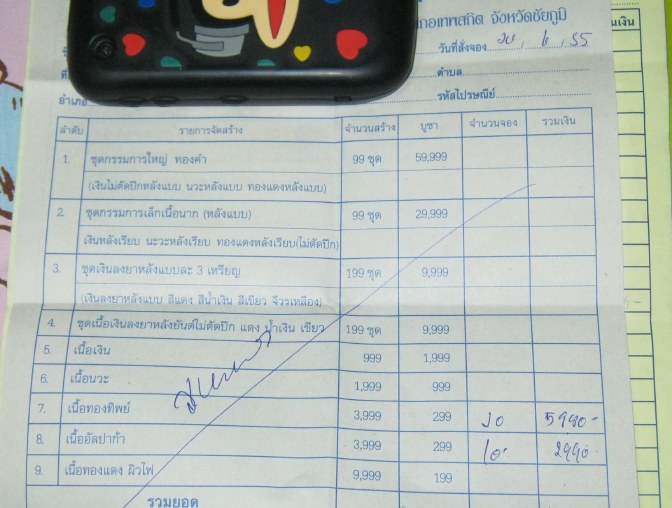 เทพสถิต จังหวัดชัยภูมิ
วันที่สั่งจอง 20, 6, 55
ตำบล
อำเภอ
รหัสไปรษณีย์
ลำดับ รายการจัดสร้าง จำนวนสร้าง บูชา จำนวนจอง รวมเงิน
1. ชุดกรรมการใหญ่ ทองคำ 99 ชุด 59,999
(เงินไม่ตัดปีกหลังแบบ นวะหลังแบบ ทองแดงหลังแบบ)
2. ชุดกรรมการเล็กเนื้อนาก (หลังแบบ) 99 ชุด 29,999
เงินหลังเรียบ นะวะหลังเรียบ ทองแดงหลังเรียบ(ไม่ตัดปีก)
3. ชุดเงินลงยาหลังแบบละ 3 เหรียญ 199 ชุด 9,999
(เงินลงยาหลังแบบ สีแดง สีน้ำเงิน สีเขียว จีวรเหลือง)
4. ชุดเนื้อเงินลงยาหลังยันต์ไม่ตัดปีก แดง น้ำเงิน เขียว 199 ชุด 9,999
5. เนื้อเงิน 999 1,999
6. เนื้อนวะ 1,999 999
7. เนื้อทองทิพย์ 3,999 299 20 5980-
8. เนื้ออัลปาก้า 3,999 299 10 2990
9. เนื้อทองแดง ผิวไฟ 9,999 199
รวมยอด